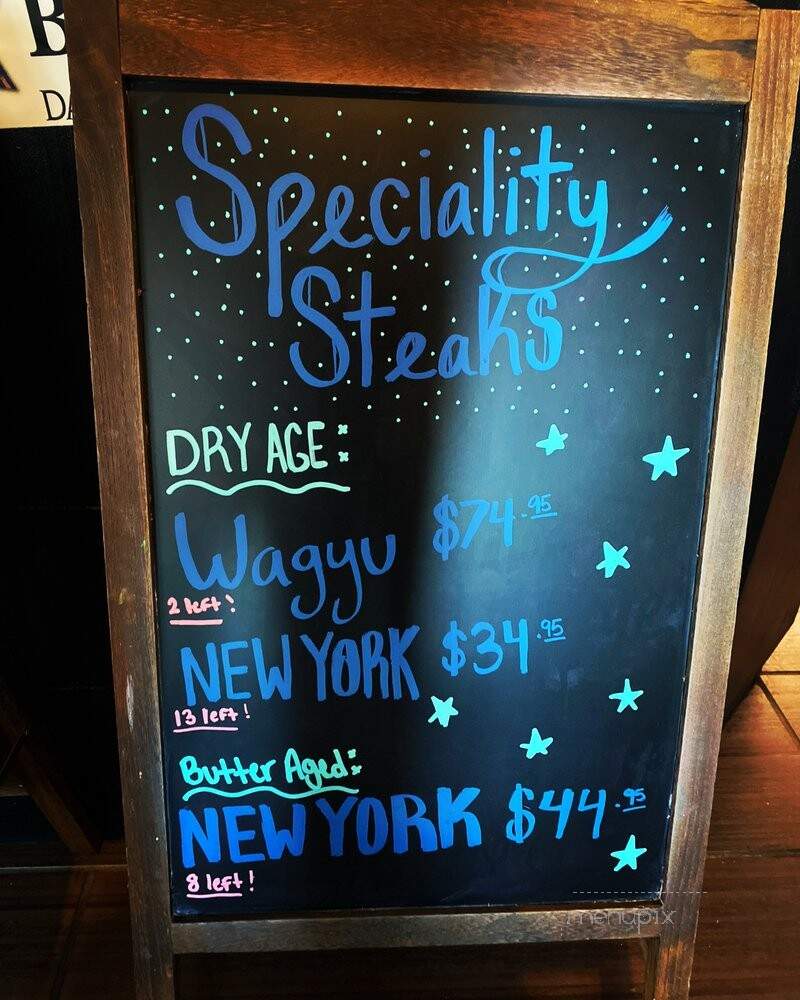 B
DA
Speciality
Steaks
DRY AGE:
Wagyu $74.95
2 left!
NEW YORK $34.95
13 left!
Butter Aged:
NEW YORK $44.95
8 left!
menupix